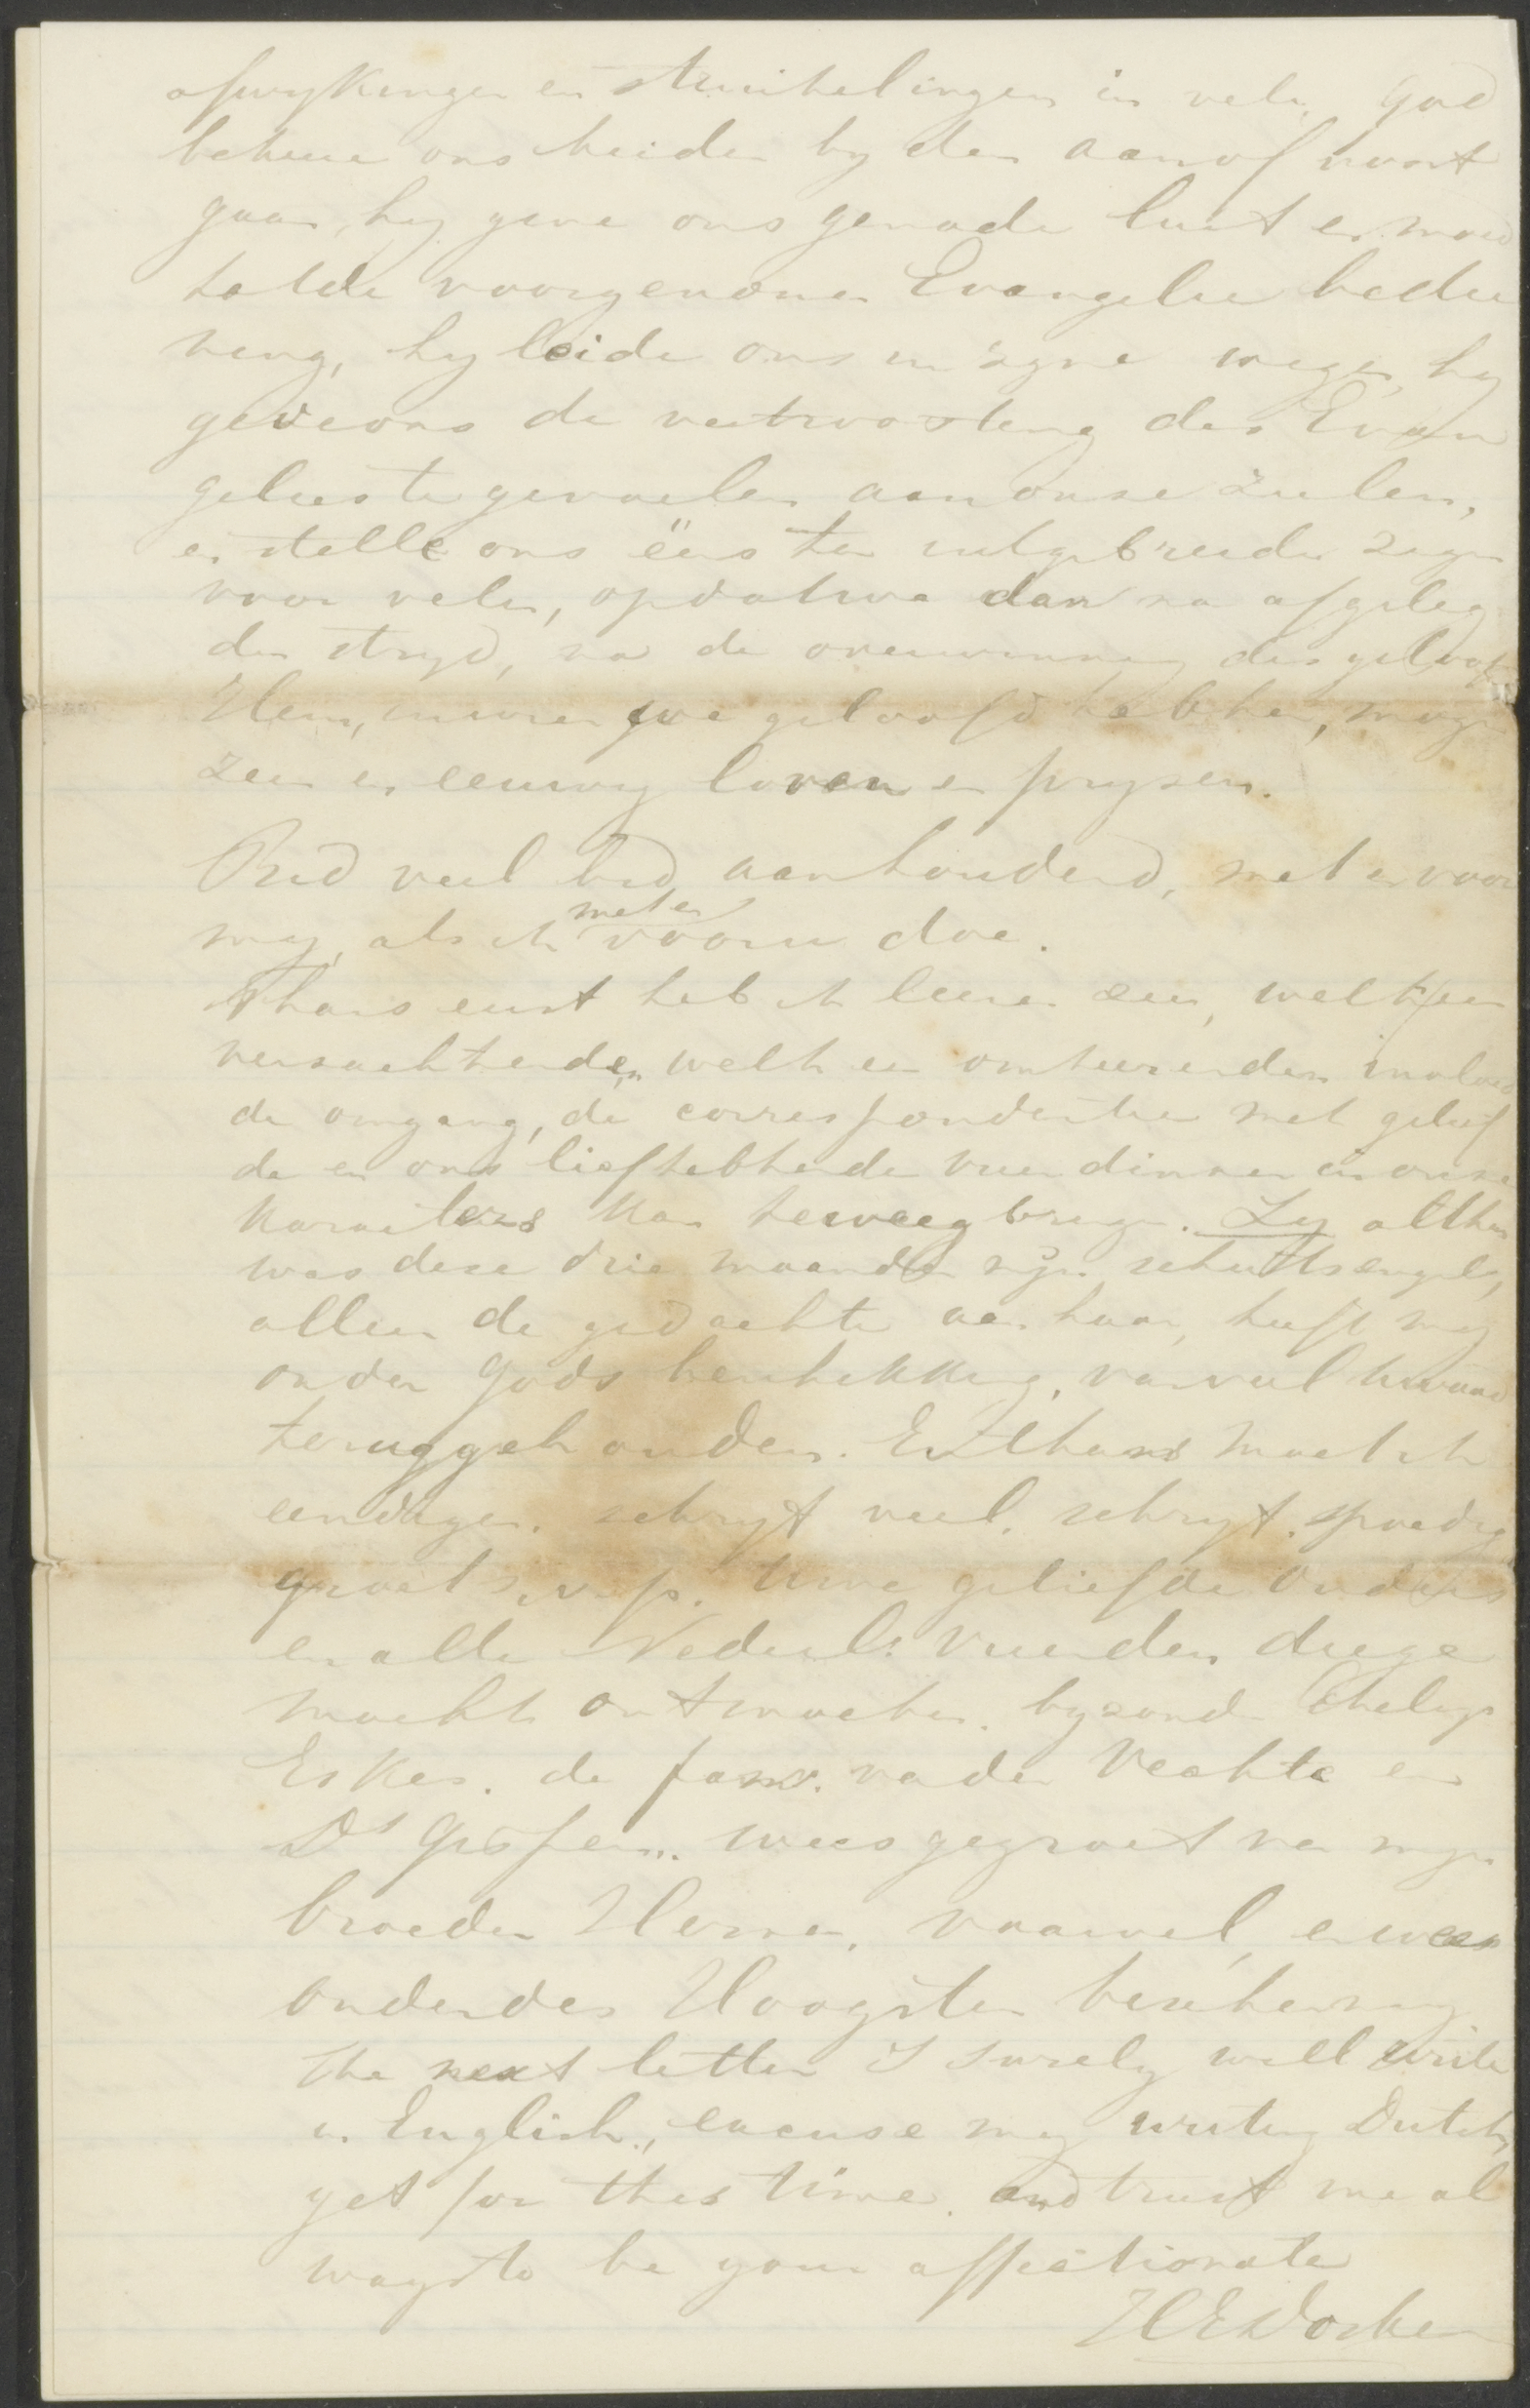 afwykingen en struikelingen in velen. God
behoede ons beiden by den aanvo voort
gaan, hy geve ons genade lust en moed
tot de voorgenomen Evangelie bedie
ning, hy leide ons in zyne wegen, hy
geve ons de vertroosting des Evan
gelies te gevoelen aan onze zielen,
en stelle ons ééns ten uitgebreiden zegen
voor velen, opdat we dan na afgeleg
den stryd, na de overwinning des geloofs
Hem, in wien we geloofd hebben, mogen
zien en eeuwig loven en prysen.
Bid veel bid aanhoudend, met en voor
my, als ik met en voor u doe.
Thans eerst heb ik leeren zien, welk een
versachtenden welk een omkeerenden invloed
de omgang, de correspondentie met gelief
de en ons liefhebbende vriendinnen in onze
karakters kan teweeg brengen. Zy althans
was deze drie maanden myn schutsengel,
alleen de gedachte aan haar, heeft my
onder Gods beschikking, van veel kwaad
teruggehouden. En thans moet ik
eendigen. schryf veel, schryf spoedig
groet s.v.p. Uwe geliefde Ouders
en alle Nederl. vrienden die ge
mocht ontmoeten. byzonder
Eskes. de fam. van der Vechte en
Ds Gispen. wees gegroet van myn
broeder Herman, vaarwel, en wees
onder des Hoogsten bescherming
The next letter I surely will write
in English, excuse my writing Dutch,
yet for this time. and trust me al
ways to be your affectionate
H E Dosker